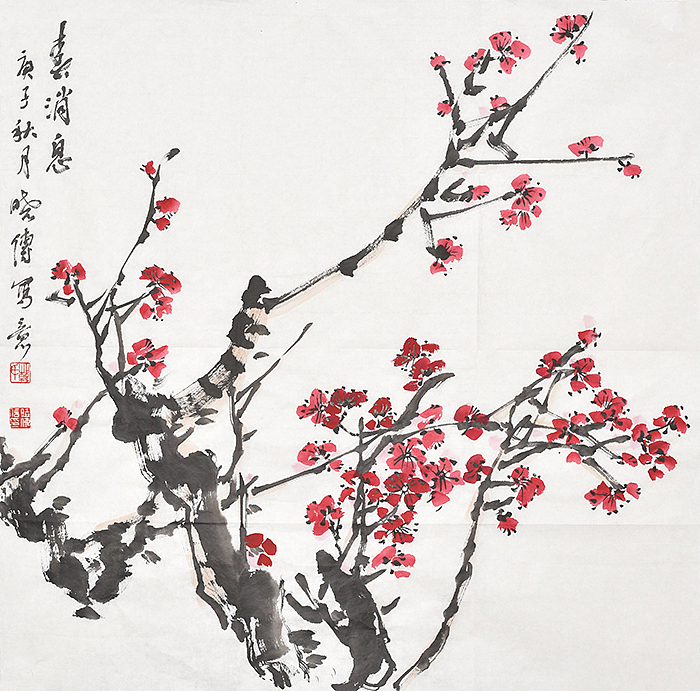 春消息
庚子秋月 晓傳写意